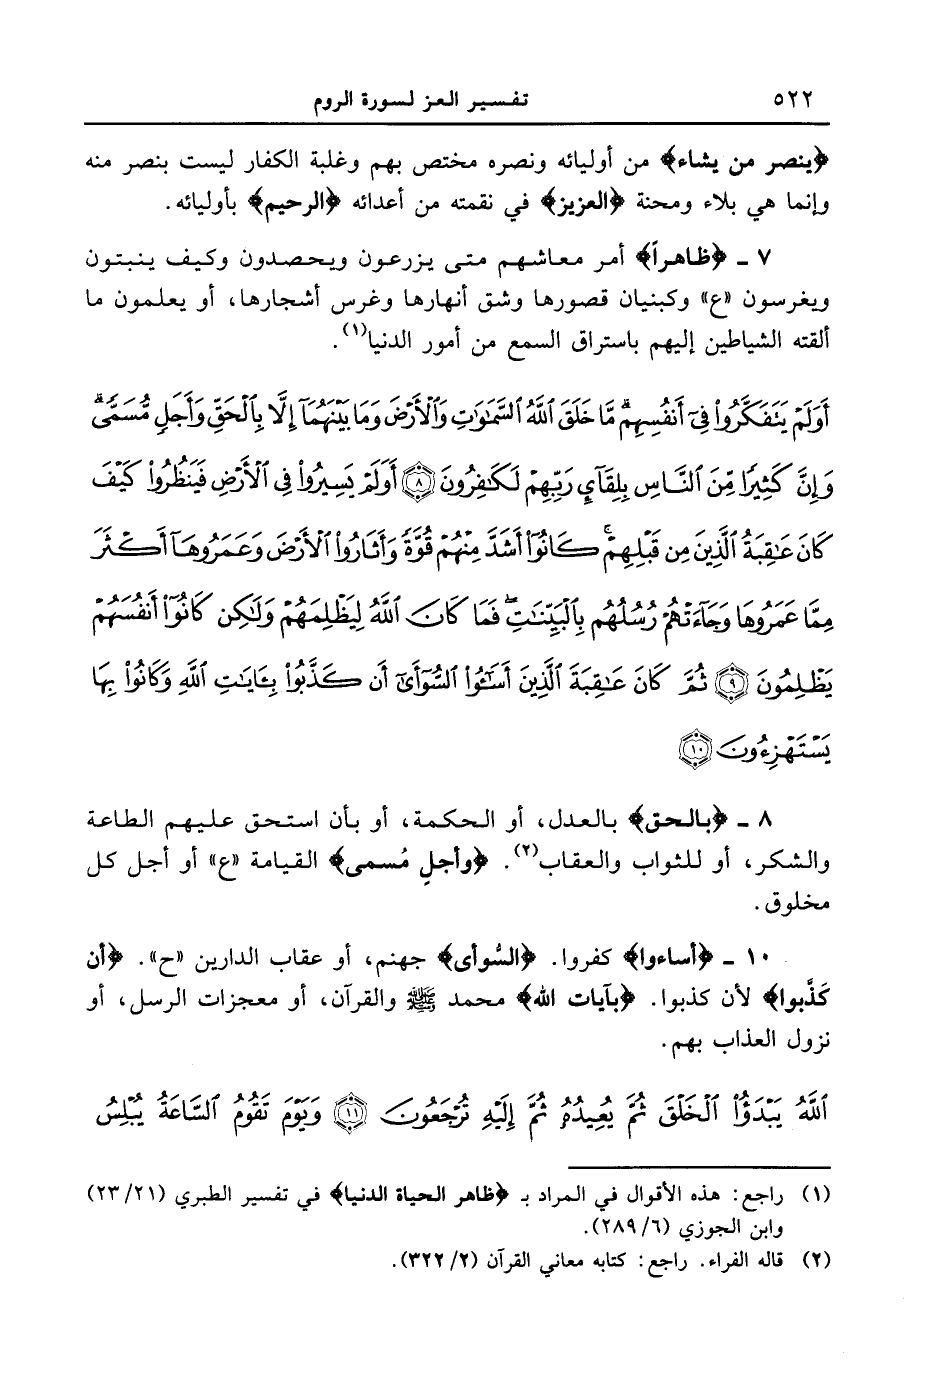 ٥٢٢ تفسير العز لسورة الروم
﴿ينصر من يشاء﴾ من أوليائه ونصره مختص بهم وغلبة الكفار ليست بنصر منه
وإنما هي بلاء ومحنة ﴿العزيز﴾ في نقمته من أعدائه ﴿الرحيم﴾ بأوليائه.
٧ ـ ﴿ظاهراً﴾ أمر معاشهم متى يزرعون ويحصدون وكيف ينبتون
ويغرسون «ع» وكبنيان قصورها وشق أنهارها وغرس أشجارها، أو يعلمون ما
ألقته الشياطين إليهم باستراق السمع من أمور الدنيا(١).
أَوَلَمْ يَتَفَكَّرُوا۟ فِىٓ أَنفُسِهِم ۗ مَّا خَلَقَ ٱللَّهُ ٱلسَّمَـٰوَٰتِ وَٱلْأَرْضَ وَمَا بَيْنَهُمَآ إِلَّا بِٱلْحَقِّ وَأَجَلٍ مُّسَمًّى ۗ
وَإِنَّ كَثِيرًا مِّنَ ٱلنَّاسِ بِلِقَآئِ رَبِّهِمْ لَكَـٰفِرُونَ ﴿٨﴾ أَوَلَمْ يَسِيرُوا۟ فِى ٱلْأَرْضِ فَيَنظُرُوا۟ كَيْفَ
كَانَ عَـٰقِبَةُ ٱلَّذِينَ مِن قَبْلِهِمْ ۚ كَانُوٓا۟ أَشَدَّ مِنْهُمْ قُوَّةً وَأَثَارُوا۟ ٱلْأَرْضَ وَعَمَرُوهَآ أَكْثَرَ
مِمَّا عَمَرُوهَا وَجَآءَتْهُمْ رُسُلُهُم بِٱلْبَيِّنَـٰتِ ۖ فَمَا كَانَ ٱللَّهُ لِيَظْلِمَهُمْ وَلَـٰكِن كَانُوٓا۟ أَنفُسَهُمْ
يَظْلِمُونَ ﴿٩﴾ ثُمَّ كَانَ عَـٰقِبَةَ ٱلَّذِينَ أَسَـٰٓـُٔوا۟ ٱلسُّوٓأَىٰٓ أَن كَذَّبُوا۟ بِـَٔايَـٰتِ ٱللَّهِ وَكَانُوا۟ بِهَا
يَسْتَهْزِءُونَ ﴿١٠﴾
٨ ـ ﴿بالحق﴾ بالعدل، أو الحكمة، أو بأن استحق عليهم الطاعة
والشكر، أو للثواب والعقاب(٢). ﴿وأجلٍ مُسمى﴾ القيامة «ع» أو أجل كل
مخلوق.
١٠ ـ ﴿أساءوا﴾ كفروا. ﴿السُّوأى﴾ جهنم، أو عقاب الدارين «ح». ﴿أن
كَذَّبوا﴾ لأن كذبوا. ﴿بآيات الله﴾ محمد ﷺ والقرآن، أو معجزات الرسل، أو
نزول العذاب بهم.
ٱللَّهُ يَبْدَؤُا۟ ٱلْخَلْقَ ثُمَّ يُعِيدُهُۥ ثُمَّ إِلَيْهِ تُرْجَعُونَ ﴿١١﴾ وَيَوْمَ تَقُومُ ٱلسَّاعَةُ يُبْلِسُ
(١) راجع: هذه الأقوال في المراد بـ ﴿ظاهر الحياة الدنيا﴾ في تفسير الطبري (٢٣/٢١)
وابن الجوزي (٢٨٩/٦).
(٢) قاله الفراء. راجع: كتابه معاني القرآن (٣٢٢/٢).